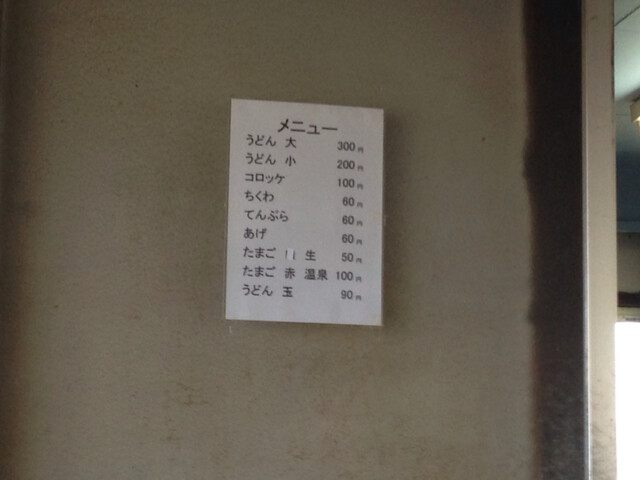 メニュー
うどん 大 300円
うどん 小 200円
コロッケ 100円
ちくわ 60円
てんぷら 60円
あげ 60円
たまご 生 50円
たまご 赤 温泉 100円
うどん 玉 90円